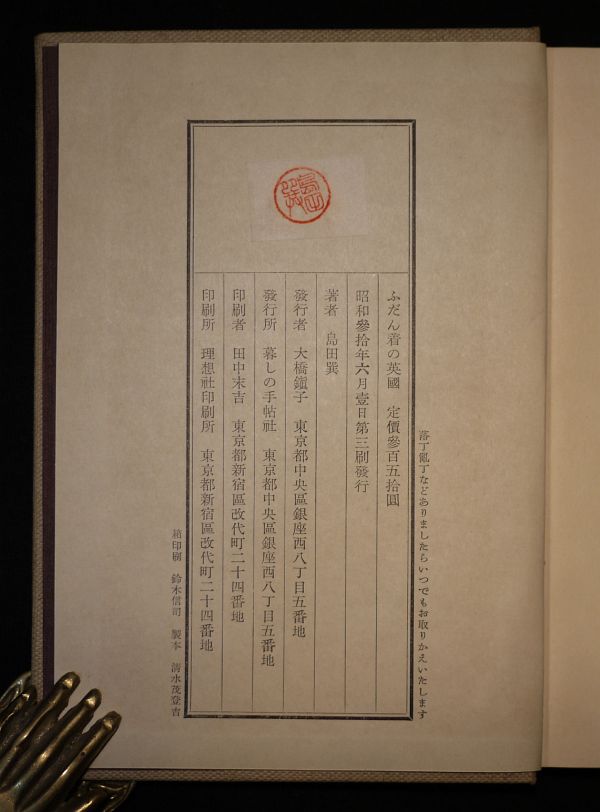 落丁亂丁などありましたらいつでもお取りかえいたします
ふだん着の英國 定價參百五拾圓
昭和參拾年六月壹日第三刷發行
著者 島田巽
發行者 大橋鎭子 東京都中央區銀座西八丁目五番地
發行所 暮しの手帖社 東京都中央區銀座西八丁目五番地
印刷者 田中末吉 東京都新宿區改代町二十四番地
印刷所 理想社印刷所 東京都新宿區改代町二十四番地
箱印刷 鈴木信司 製本 淸水茂登吉